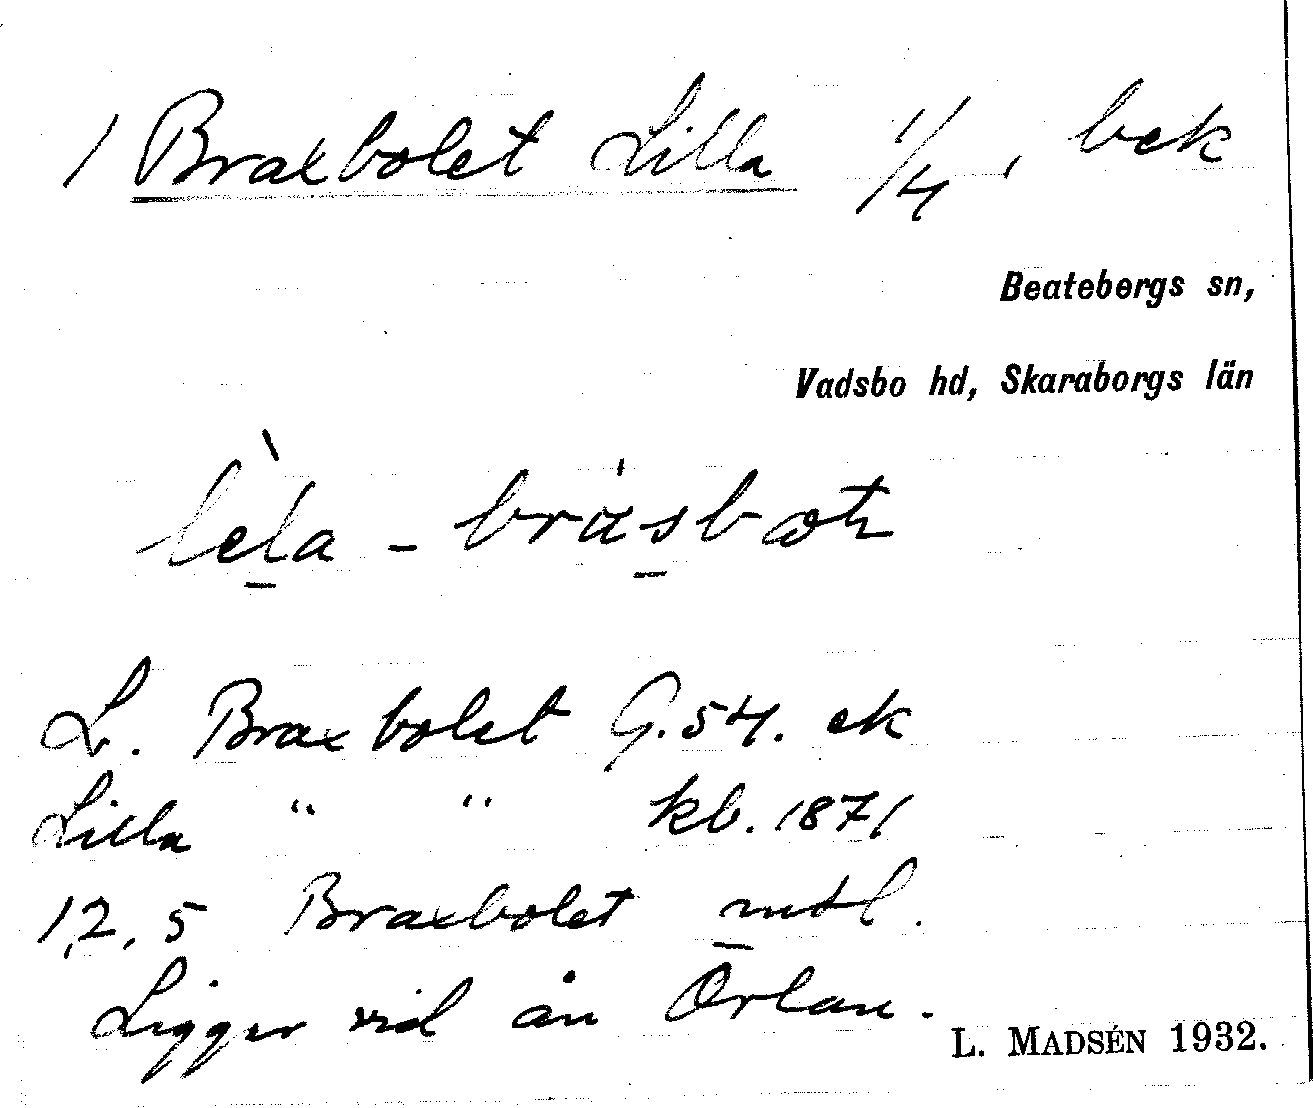 1 Braxbolet Lilla 1/4, bek
Beatebergs sn,
Vadsbo hd, Skaraborgs län
L. Braxbolet G.54. ek
Lilla " " kb. 1871
1,2,5 Braxbolet mtl.
Ligger vid ån Örlan.
L. MADSÉN 1932.